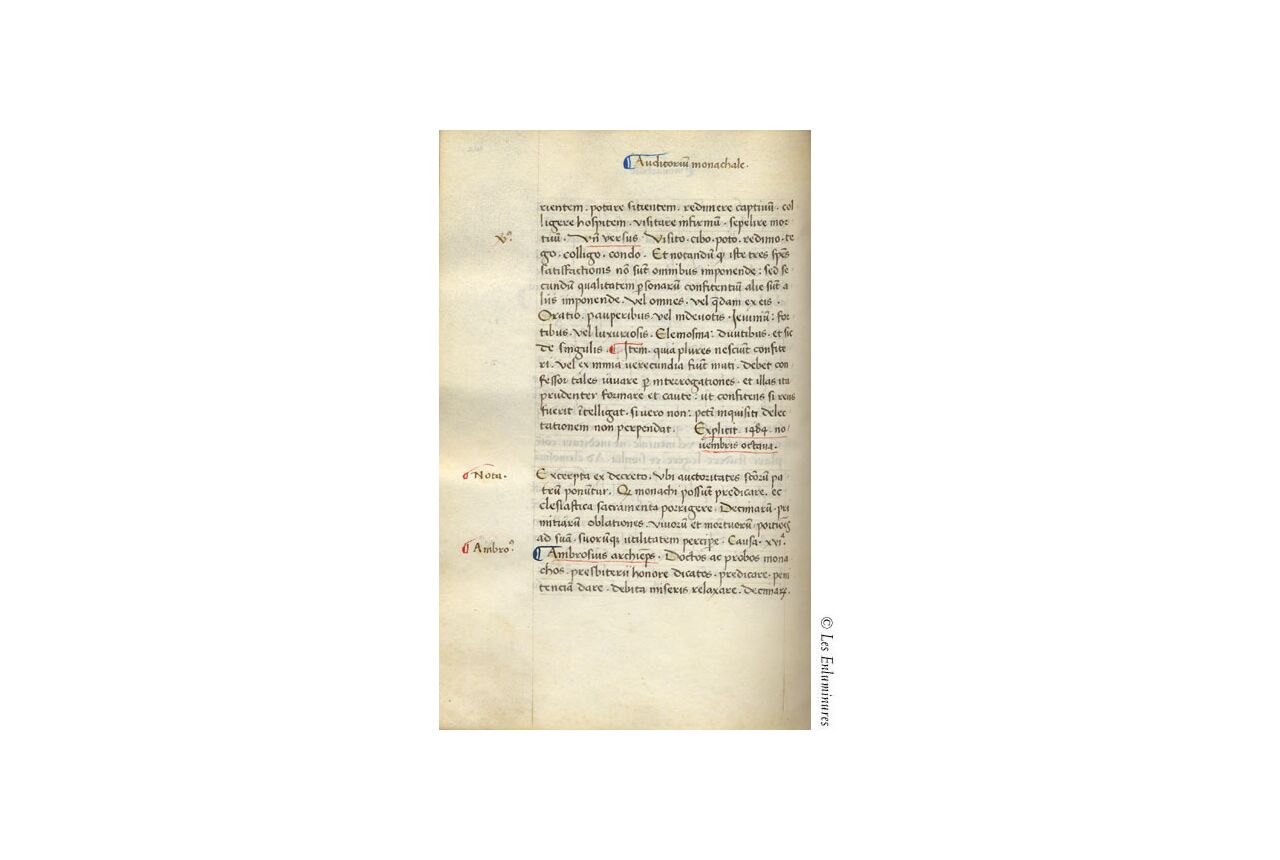 Auditoriū monachale.
rientem. potare sitientem. redimere captiuū. col
ligere hospitem. visitare infirmū. sepelire mor
v⁹.
tuū. Vñ versus. Visito. cibo. poto. redimo. te
go. colligo. condo. Et notandū iste tres spēs
satisfactionis nō sūt omnibus imponende: sed se
cundū qualitatem ꝑsonarum confitentiū alie sūt a
liis imponende. Vel omnes. vel q̄dam ex eis.
Oratio. pauperibus vel indeuotis. Ieiuniū: for
tibus. vel luxuriosis. Elemosina: diuitibus. et sic
de singulis. ¶ Item. quia plures nesciūt confite
ri. Vel ex nimia verecundia fiūt muti. debet con
fessor tales iuuare ꝑ interrogationes. et illas ita
prudenter formare et caute: ut confitens si reus
fuerit ītelligat. si uero non: inquisiti delec
tationem non perpendat. Explicit. 1484. no
uembris octaua.
¶ Nota.
Excerpta ex decreto. Vbi auctoritates sc̄orū pa
trū ponūtur. monachi possūt predicare. ec
clesiastica sacramenta porrigere. Decimarū. pri
mitiarū oblationes. viuorū et mortuorū portiōes
ad suā. suorūqꝫ utilitatem percipe. Causa. xvi.ᵃ
¶ Ambro⁹.
¶ Ambrosius archieps̄. Doctos ac probos mona
chos. presbiterii honore dicatos. predicare. peni
tenciā dare. debita miseris relaxare. decimaꝝ.
© Les Enluminures